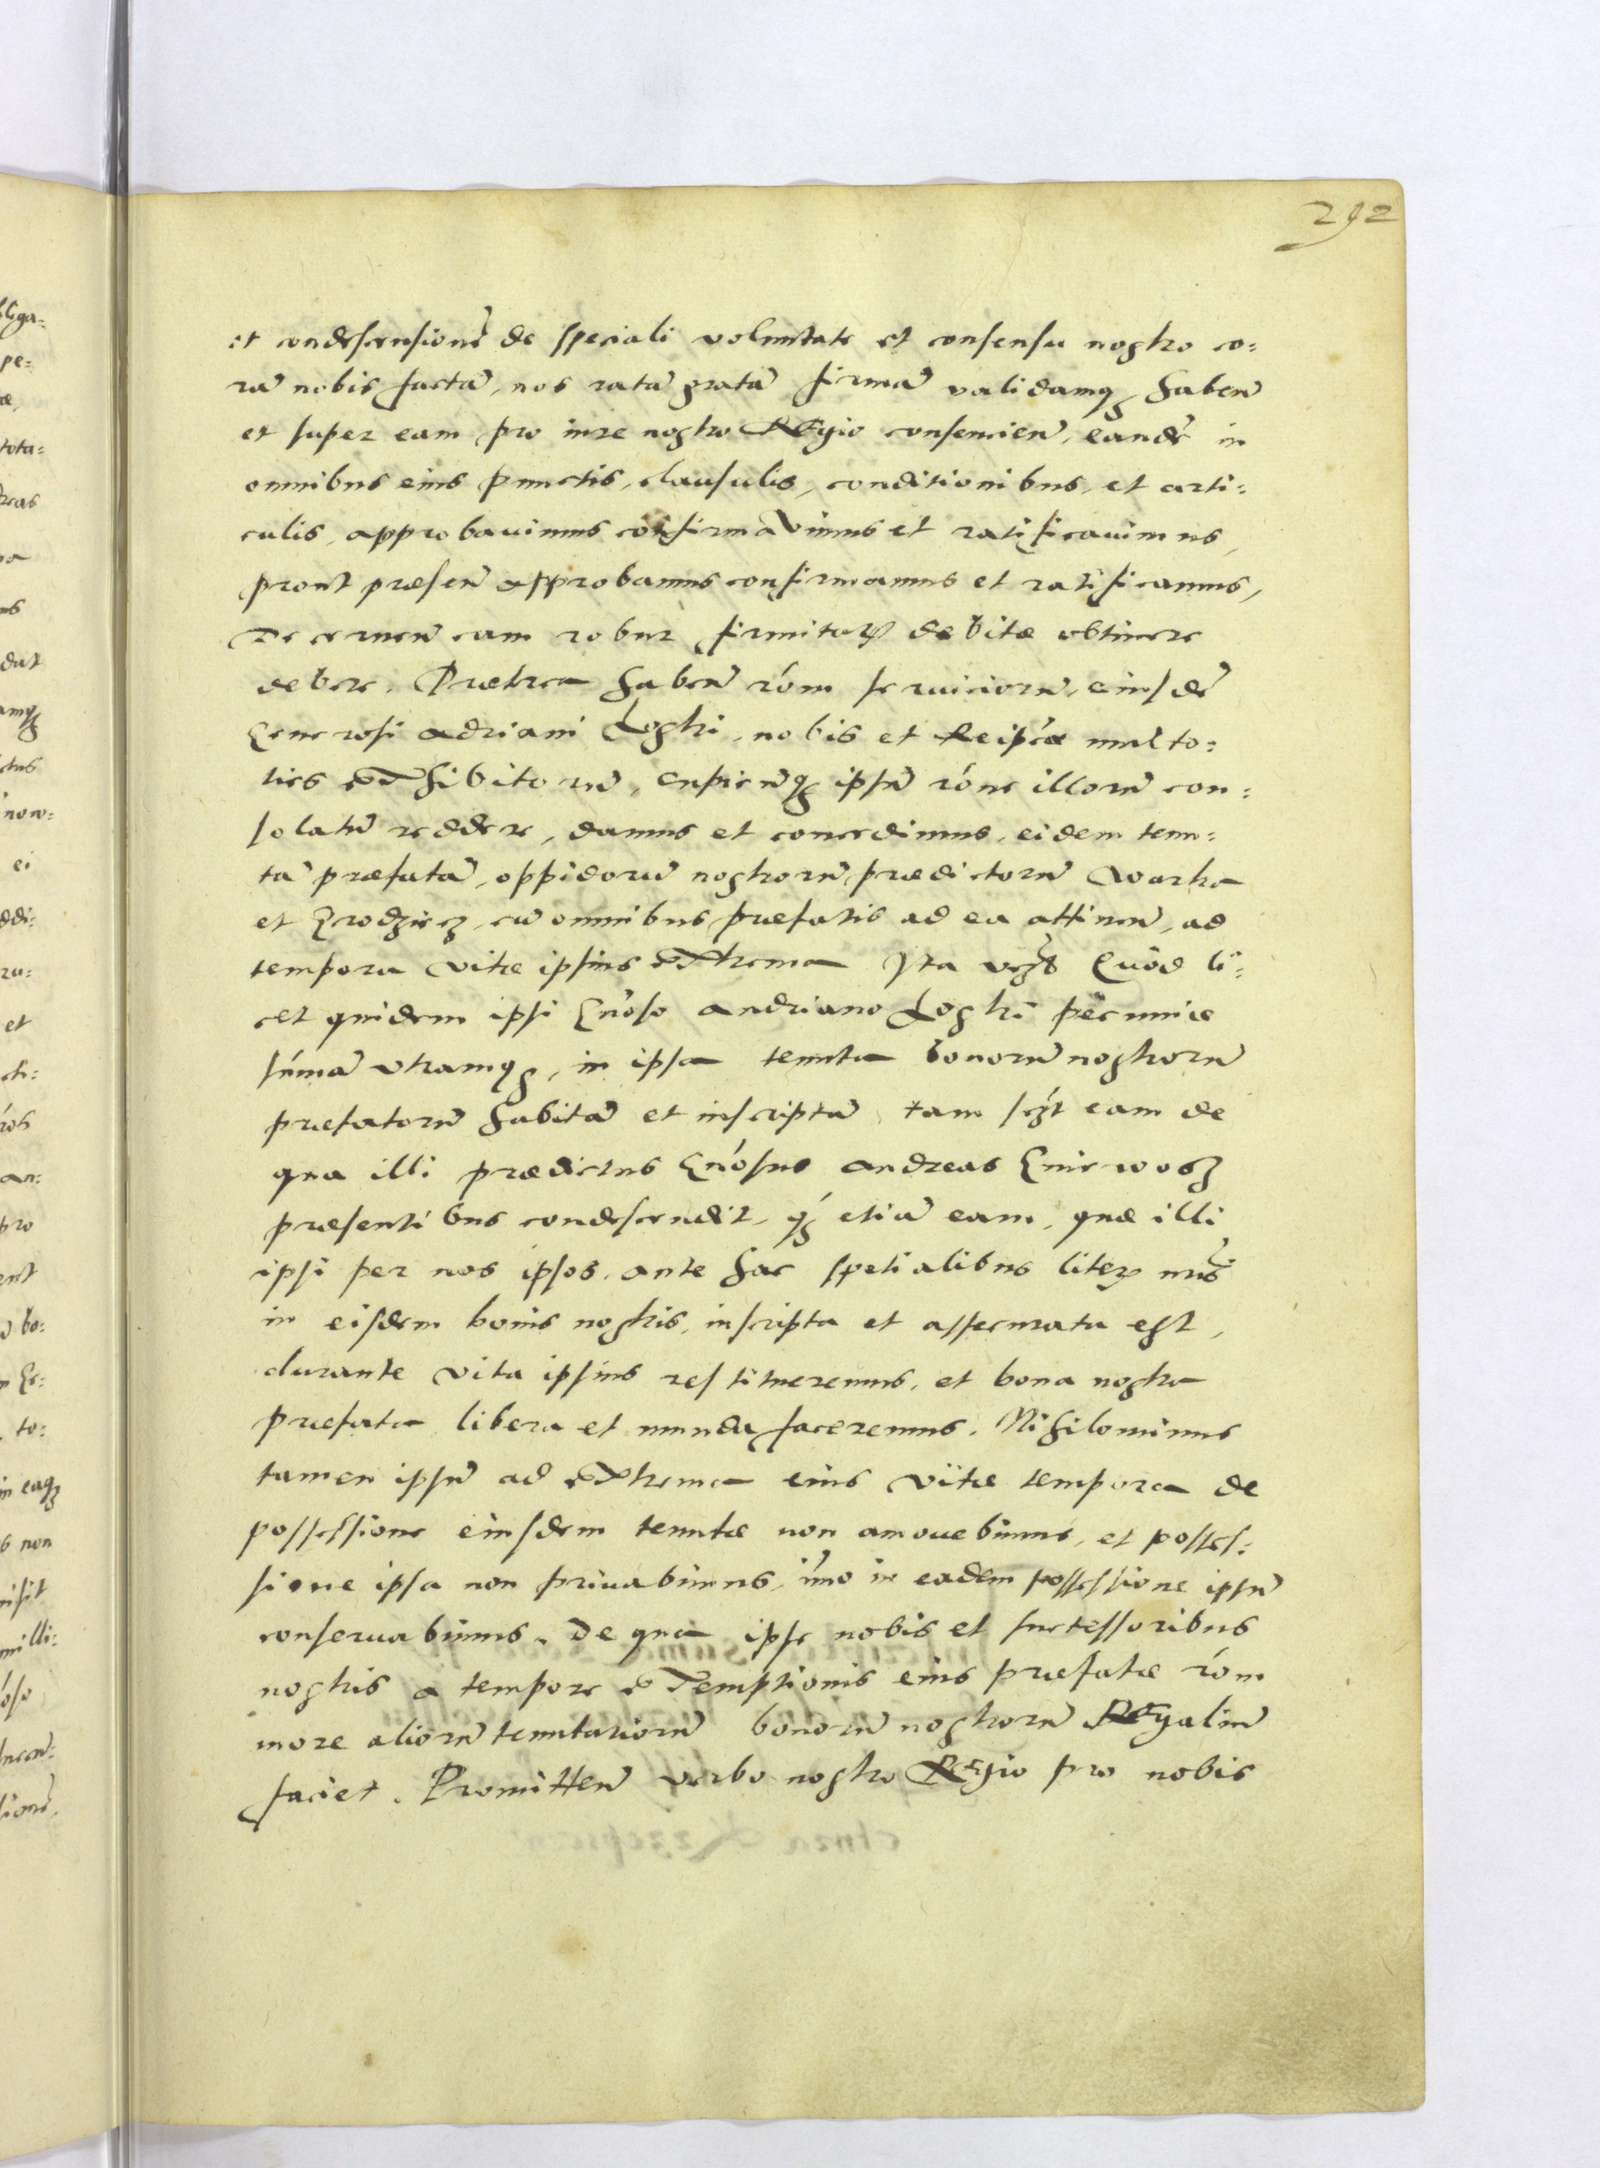 292
et condescensionē de speciali voluntate et consensu nostro co:
rā nobis factā, nos ratā gratā firmā validamq₃ haben̄
et super eam pro iure nostro Regio consencien̄, eandē in
omnibus eius punctis, clausulis, conditionibus, et arti:
culis, approbauimus confirmavimus et ratificauimus,
prout præsen̄ approbamus confirmamus et ratificamus,
Decernen̄ eam robur firmitaꝝ debitæ obtinere
debere. Præterea haben̄ rōm seruiciorū, eiusdē
Generosi Adriani Loski, nobis et Reipcæ multo:
ties exhibitorū, cupien̄q₃ ipsū rōne illorū con:
solatū reddere, damus et concedimus, eidem tenu:
tā præfatā, oppidorū nostrorū prædictorū Warka
et Grodziecz, cū omnibus præfatis ad ea attinen̄, ad
tempora vitæ ipsius extrema Ita Quòd li:
cet quidem ipsi Gn̄oso Andriano Loski pecuniæ
sūmā vtramq₃, in ipsa tenuta bonorū nostrorū
præfatorū habitā et inscriptā tam sczt eam de
qua illi prædictus Gn̄osus Andreas Gniewosz
præsentibus condescendit, q₃ etiā eam, quæ illi
ipsi per nos ipsos, ante hac spetialibus literꝝ nr̄is
in eisdem bonis nostris, inscripta et assecurata est,
durante vita ipsius restitueremus, et bona nostra
præfata libera et munda faceremus. Nihilominus
tamen ipsū ad extrema eius vitæ tempora de
possessione eiusdem tenutæ non amouebimus, et posses:
sione ipsa non priuabimus, īmo in eadem possessione ipsū
conseruabimus. De qua ipse nobis et successoribus
nostris à tempore exemptionis eius præfatæ rōm
more aliorū tenutariorū bonorū nostrorū Regaliū
faciet. Promitten̄ verbo nostro Regio pro nobis